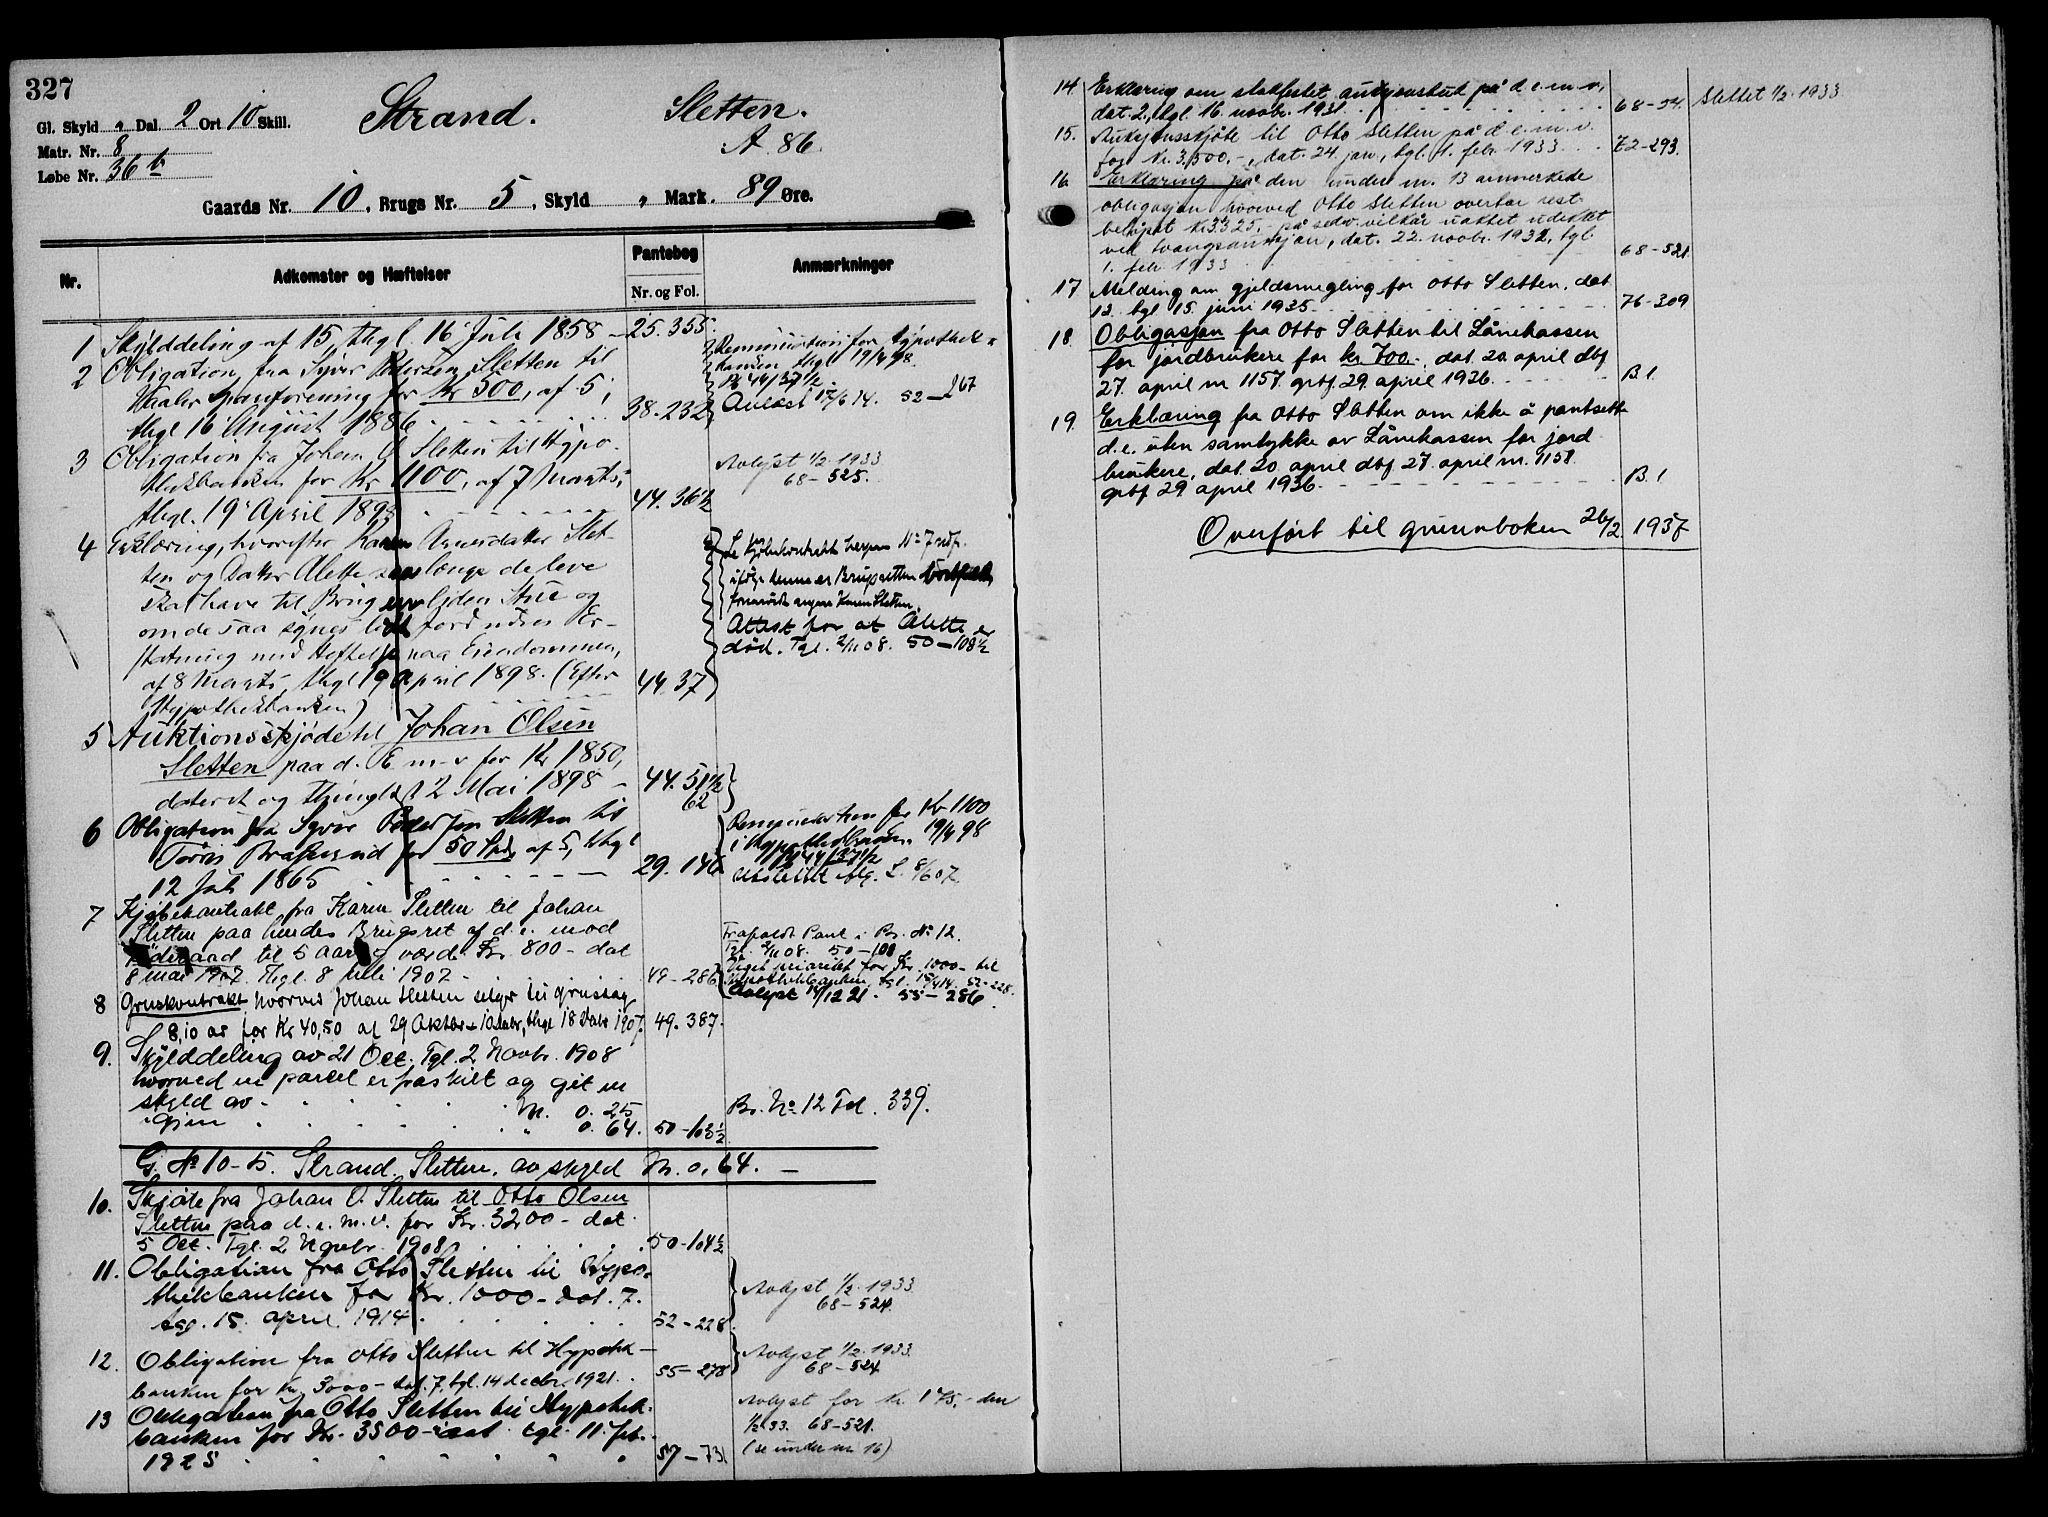 327
Gl. Skyld „ Dal. 2 Ort 10 Skill.
Matr. Nr. 8
Løbe Nr. 36 b
Strand. Sletten.
A. 86.
Gaards Nr. 10, Brugs Nr. 5, Skyld „ Mark. 89 Øre.
Nr.
Adkomster og Hæftelser
Pantebog
Nr. og Fol.
Anmærkninger
1 Skylddeling af 15, thgl. 16 Juli 1858 – 25.355.
2 Obligation fra Syver Pedersen Sletten til
Vaaler Spareforening for Kr 500, af 5,
thgl 16 August 1886 38.232
Renunciation for Hypothek-
banken thgl 19/4 98.
Pb 44/37½.
Avlæst 15/6 14. 52–267
3 Obligation fra Johan O Sletten til Hypo-
thekbanken for Kr 1100, af 7 Marts,
thgl. 19 April 1898 44.36½
Avlyst 1/2 1933
68–525.
4 Erklæring, hvorefter Karen Sletten
og Datter Alette saalænge de leve
skal have til Brug en liden Stue og
om de saa synes lidt Jord uden Er-
statning med Heftelse paa Eiendommen,
af 8 Marts, thgl 19 April 1898. (Efter
Hypothekbanken) 44.37
Se Kjøbekontrakt herpaa No 7 ndf.
ifølge denne er Brugsretten bortfaldt
forsaavidt angaar Karen Sletten.
Attest for at Alette er
død. Tgl. 2/11 08. 50–108½
5 Auktionsskjøde til Johan Olsen
Sletten paa d. E m–v for Kr 1850,
dateret og thinglyst 2 Mai 1898 – 44.51½
62
6 Obligation fra Syver Pedersen Sletten til
Tørris Braskerud for 50 Spd, af 5, thgl
12 Juli 1865 29.146
Renunciation for Kr 1100
i Hypothekbanken 19/4 98
Pb 44/37½
Udslettet 8/6 07.
7 Kjøbekontrakt fra Karen Sletten til Johan
Sletten paa hendes Brugsret af d. e. mod
til 5 aar værd Kr. 800 – dat
8 mai 1907. Thgl. 8 Juli 1907 – 49–286
Frafaldt Pant i Br. No 12.
Tgl. 2/11 08. 50–108
Veget prioritet for Kr. 1000– til
Hypothekbanken, tgl. 15/4 14. 52–228.
Avlyst 14/12 21. 55–286.
8 Gruskontrakt hvorved Johan Sletten sælger til grustag
8,10 ar for Kr 40,50 af 29 Oktbr + 10 Novbr, thgl 18 Novbr 1907. 49.387.
9. Skylddeling av 21 Oct. Tgl. 2 Novbr. 1908
hvorved en parcel er fraskilt og git en
skyld av M. 0.25
igjen „ 0.64. 50–103½
Br. No 12 Fol. 339.
G. No 10–5. Strand, Sletten, av skyld M. 0.64. –
10. Skjøte fra Johan O. Sletten til Otto Olsen
Sletten paa d. e. m. v. for Kr. 3200 – dat.
5 Oct. Tgl. 2 Novbr. 1908. 50–104½
11. Obligation fra Otto Sletten til Hypo-
thekbanken for Kr. 1000 – dat. 7.
tgl. 15. april 1914. 52–228
Avlyst 1/2 1933
68–524.
12. Obligation fra Otto Sletten til Hypothek-
banken for Kr. 3000 – dat. 7, tgl. 14 decbr. 1921. 55–278
Avlyst 1/2 1933.
68–524
13 Obligation fra Otto Sletten til Hypothek-
banken for Kr. 3500 – dat. tgl. 11. febr.
1925 57–731
Avlyst for kr. 175,– den
1/2 33. 68–521.
(se under nr. 16)
14. Erklæring om stadfestet auksjonsbud på d. e. m. v,
dat. 2., tgl. 16. novbr. 1931. 68–54. Slettet 1/2. 1933
15. Auksjonsskjøte til Otto Sletten på d. e. m. v.
for kr. 3.500,–, dat. 24. jan., tgl. 1. febr. 1933. 72–293.
16. Erklæring på den under nr. 13 anmerkede
obligasjon hvorved Otto Sletten overtar rest-
beløpet kr. 3325,– på sedv. vilkår uaktet udekket
ved tvangsauksjon, dat. 22. novbr. 1932, tgl.
1. febr 1933 68–521.
17 Melding om gjeldsmegling for Otto Sletten, dat
12. tgl 15. juni 1935. 76–309
18. Obligasjon fra Otto Sletten til Lånekassen
for jordbrukere for kr. 700.– dat. 20. april dbf
27. april nr 1157. grbf. 29. april 1936. B.1.
19. Erklæring fra Otto Sletten om ikke å pantsette
d.e. uten samtykke av Lånekassen for jord
brukere, dat. 20. april dbf. 27. april nr. 1158.
grbf 29 april 1936. B.1
Overført til grunnboken 26/2 1937